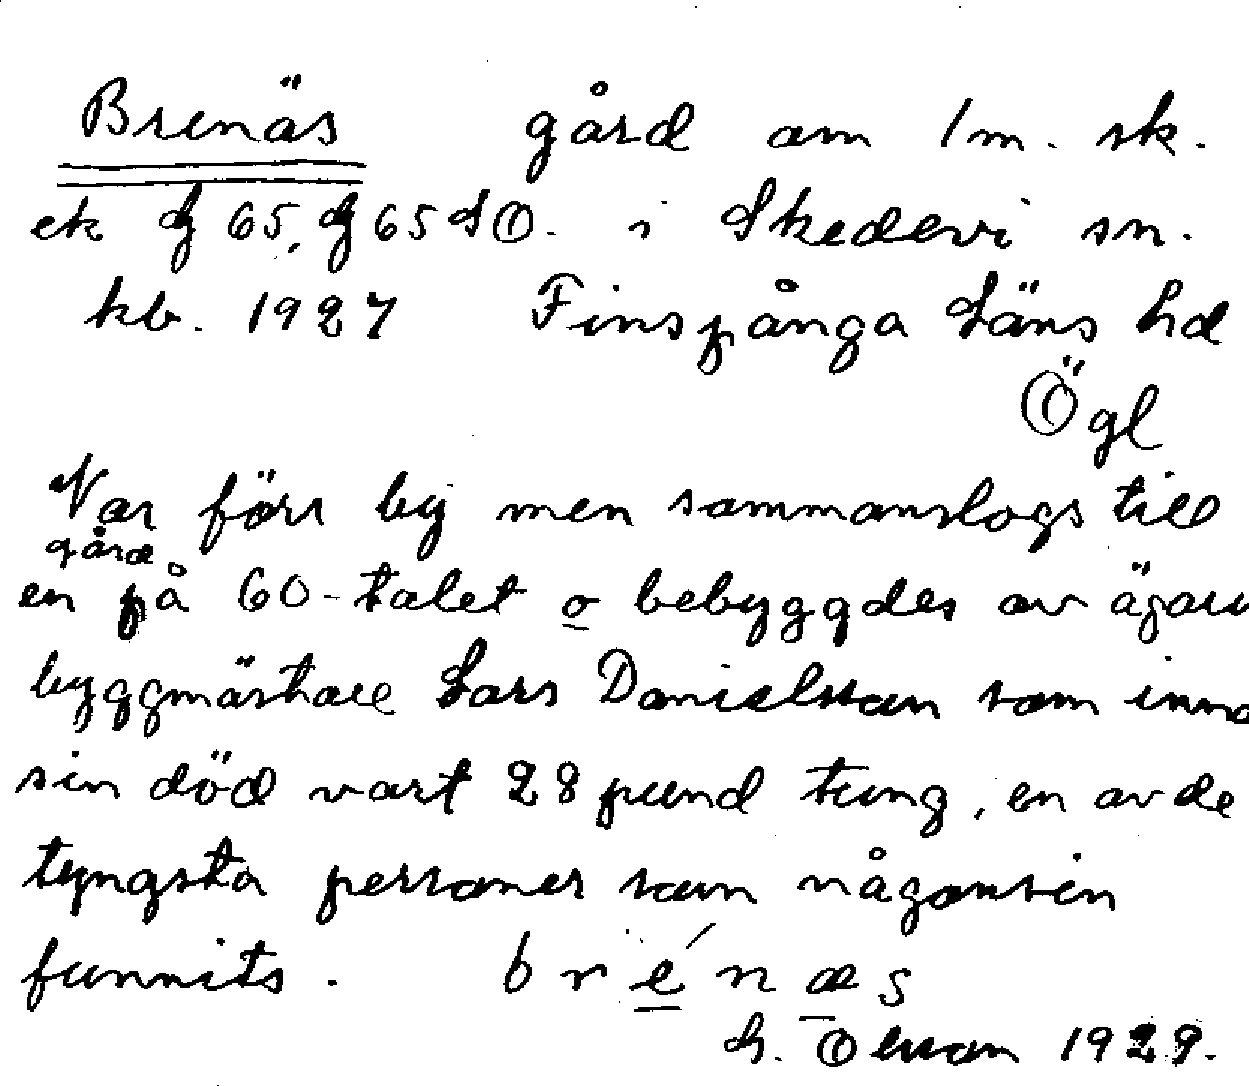 Brenäs gård om 1 m. sk.
ek df 65, df 65 SO. i Skedevi sn.
kb. 1927 Finspånga Läns hd
Ögl
Var förr by men sammanslogs till
gård
en på 60-talet o bebyggdes av ägaren
byggmästare Lars Danielsson som innan
sin död vart 28 pund tung, en av de
tyngsta personer som någonsin
funnits. bré́næs
Olsson 1929.